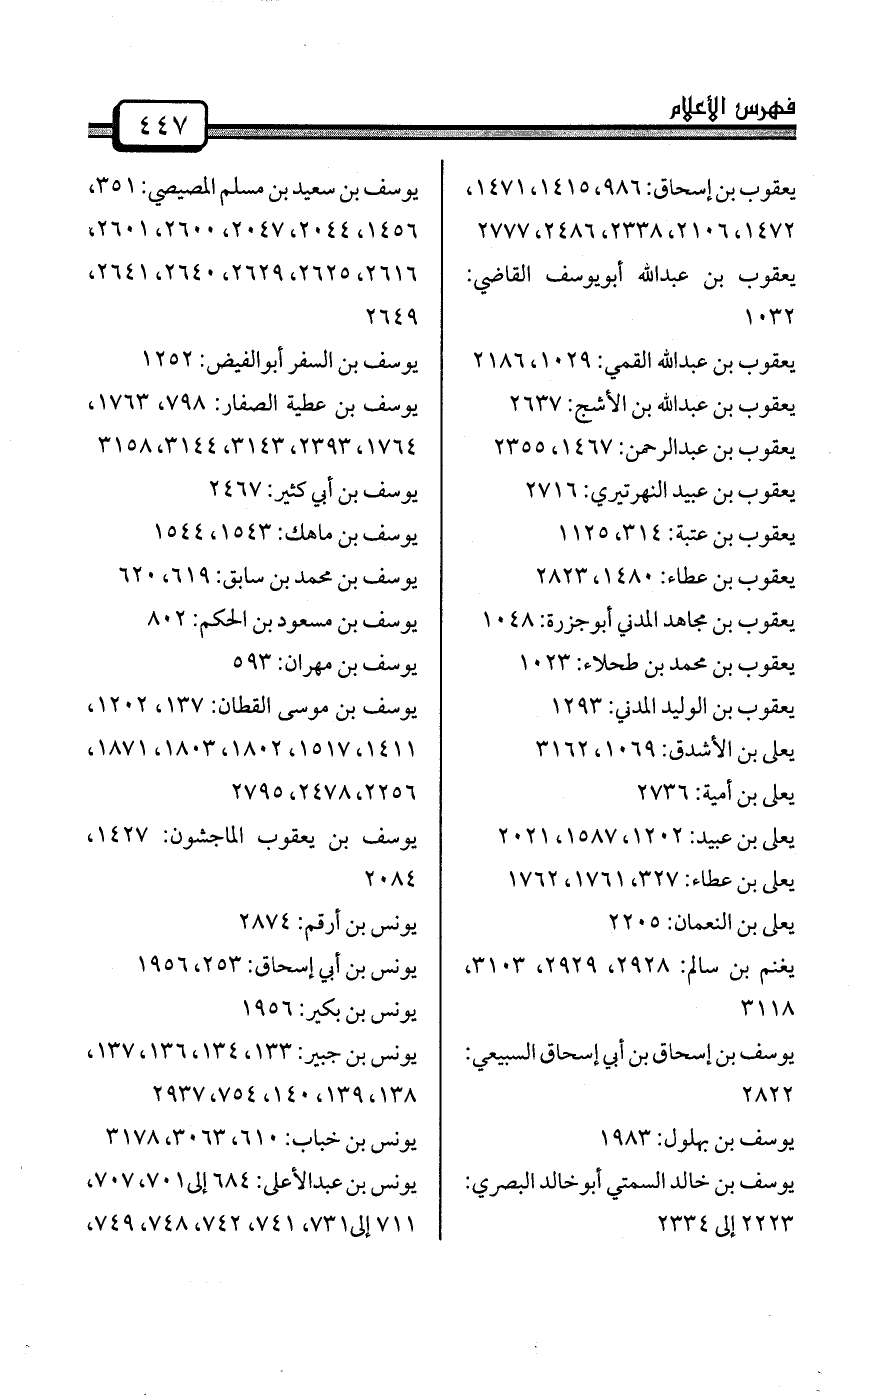 فهرس الأعلام
٤٤٧
يعقوب بن إسحاق: ٩٨٦، ١٤١٥، ١٤٧١،
١٤٧٢، ٢١٠٦، ٢٣٣٨، ٢٤٨٦، ٢٧٧٧
يعقوب بن عبدالله أبويوسف القاضي:
١٠٣٢
يعقوب بن عبدالله القمي: ١٠٢٩، ٢١٨٦
يعقوب بن عبدالله بن الأشج: ٢٦٣٧
يعقوب بن عبدالرحمن: ١٤٦٧، ٢٣٥٥
يعقوب بن عبيد النهرتيري: ٢٧١٦
يعقوب بن عتبة: ٣١٤، ١١٢٥
يعقوب بن عطاء: ١٤٨٠، ٢٨٢٣
يعقوب بن مجاهد المدني أبوجزرة: ١٠٤٨
يعقوب بن محمد بن طحلاء: ١٠٢٣
يعقوب بن الوليد المدني: ١٢٩٣
يعلى بن الأشدق: ١٠٦٩، ٣١٦٢
يعلى بن أمية: ٢٧٣٦
يعلى بن عبيد: ١٢٠٢، ١٥٨٧، ٢٠٢١
يعلى بن عطاء: ٣٢٧، ١٧٦١، ١٧٦٢
يعلى بن النعمان: ٢٢٠٥
يغنم بن سالم: ٢٩٢٨، ٢٩٢٩، ٣١٠٣،
٣١١٨
يوسف بن إسحاق بن أبي إسحاق السبيعي:
٢٨٢٢
يوسف بن بهلول: ١٩٨٣
يوسف بن خالد السمتي أبوخالد البصري:
٢٢٢٣ إلى ٢٣٣٤
يوسف بن سعيد بن مسلم المصيصي: ٣٥١،
١٤٥٦، ٢٠٤٤، ٢٠٤٧، ٢٦٠٠، ٢٦٠١،
٢٦١٦، ٢٦٢٥، ٢٦٢٩، ٢٦٤٠، ٢٦٤١،
٢٦٤٩
يوسف بن السفر أبوالفيض: ١٢٥٢
يوسف بن عطية الصفار: ٧٩٨، ١٧٦٣،
١٧٦٤، ٢٣٩٣، ٣١٤٣، ٣١٤٤، ٣١٥٨
يوسف بن أبي كثير: ٢٤٦٧
يوسف بن ماهك: ١٥٤٣، ١٥٤٤
يوسف بن محمد بن سابق: ٦١٩، ٦٢٠
يوسف بن مسعود بن الحكم: ٨٠٢
يوسف بن مهران: ٥٩٣
يوسف بن موسى القطان: ١٣٧، ١٢٠٢،
١٤١١، ١٥١٧، ١٨٠٢، ١٨٠٣، ١٨٧١،
٢٢٥٦، ٢٤٧٨، ٢٧٩٥
يوسف بن يعقوب الماجشون: ١٤٢٧،
٢٠٨٤
يونس بن أرقم: ٢٨٧٤
يونس بن أبي إسحاق: ٢٥٣، ١٩٥٦
يونس بن بكير: ١٩٥٦
يونس بن جبير: ١٣٣، ١٣٤، ١٣٦، ١٣٧،
١٣٨، ١٣٩، ١٤٠، ٧٥٤، ٢٩٣٧
يونس بن خباب: ٦١٠، ٣٠٦٣، ٣١٧٨
يونس بن عبدالأعلى: ٦٨٤ إلى ٧٠١، ٧٠٧،
٧١١ إلى ٧٣١، ٧٤١، ٧٤٢، ٧٤٨، ٧٤٩،